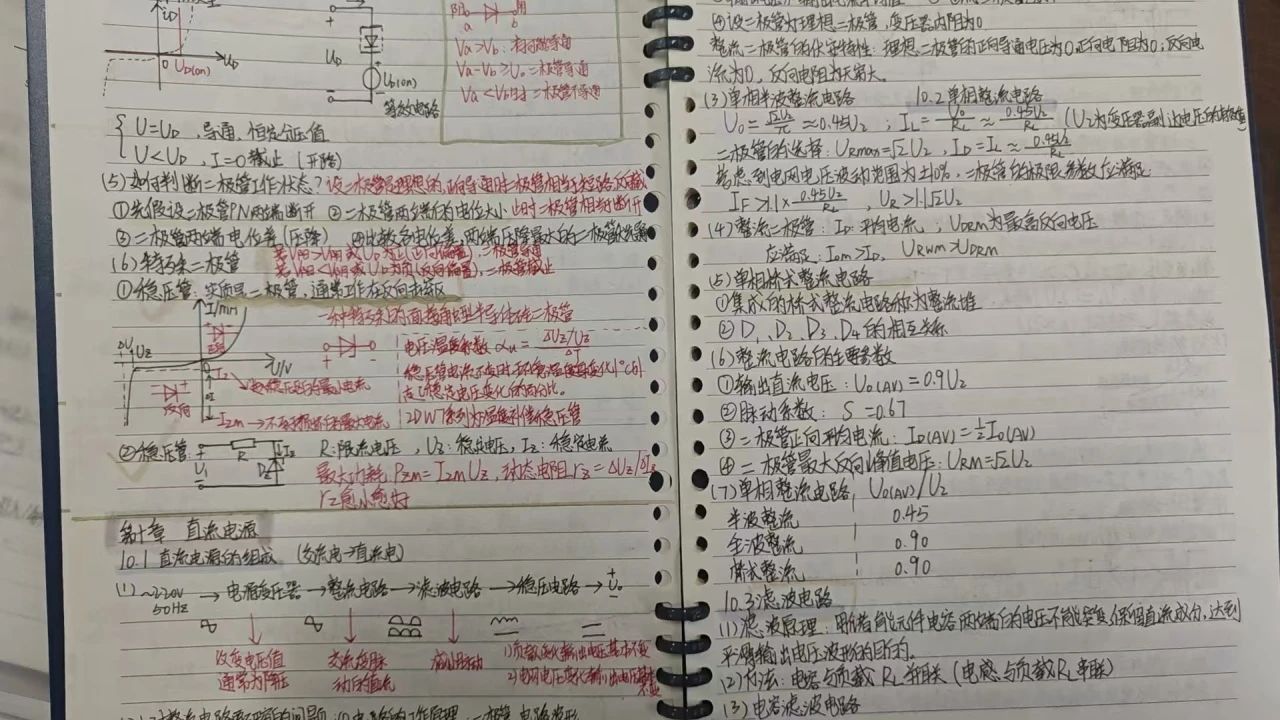 UD
0 UD(on) UD
UD
UD(on)
等效电路
a b
Va>Vb:
Va-Vb>U。二极管导通
Va<Vb时 二极管不导通
U=UD,导通,恒定压值
U<UD,I=0截止(开路)
(5)如何判断二极管工作状态?设二极管是理想的,正向导通时二极管相当于短路,反截
①先假设二极管PN两端断开 ②二极管两端的电位大小 此时二极管相当断开
③二极管两端电位差(压降) ④比较各电位差,两端压降最大的二极管优先导
(6)特殊二极管
二极管导通
二极管截止
①稳压管:实质是二极管,通常工作在反向击穿区
I/mA
一种特殊的面接触型半导体硅二极管
ΔU UZ
正向
0
U/V
IZ
稳压时的最小电流
反向
IZm→不会损坏的最大电流
电压温度系数 αu = ΔUZ/UZ / ΔT
稳压管电流不变时,环境温度每变化1℃引
起稳定电压变化的百分比。
2DW7系列为温度补偿稳压管
②稳压管
R
IZ
U1
DZ
R:限流电压,UZ:稳出电压,IZ:稳定电流
最大功耗 PZm=IZmUZ,动态电阻 rZ=ΔUZ/ΔIZ
rZ愈小愈好
第十章 直流电源
10.1 直流电源的组成 (交流电→直流电)
(1) ~220V 50Hz → 电源变压器 → 整流电路 → 滤波电路 → 稳压电路 → + Uo
改变电压值
通常为降压
交流变脉
动的直流
减小脉动
1)负载变化输出电压基本不变
2)电网电压变化输出电压基本不变
④设二极管为理想二极管,变压器内阻为0
整流二极管的伏安特性:理想二极管的正向导通电压为0,正向电阻为0,反向电
流为0,反向电阻为无穷大。
(3)单相半波整流电路 10.2单相整流电路
Uo=√2U2/π≈0.45U2;IL=Uo/RL≈0.45U2/RL (U2为变压器副边电压的有效值)
二极管的选择:URmax=√2U2,ID=IL≈0.45U2/RL
考虑到电网电压波动范围为±10%,二极管的极限参数应满足
IF>1.1×0.45U2/RL,UR>1.1√2U2
(4)整流二极管:ID:平均电流;UDRM为最高反向电压
应满足:IDm>ID,URWM>UDRM
(5)单相桥式整流电路
①集成的桥式整流电路称为整流堆
②D1、D2、D3、D4的相互关系
(6)整流电路的主要参数
①输出直流电压:Uo(AV)=0.9U2
②脉动系数:S=0.67
③二极管正向平均电流:ID(AV)=½Io(AV)
④二极管最大反向峰值电压:URM=√2U2
(7)单相整流电路 Uo(AV)/U2
半波整流 0.45
全波整流 0.90
桥式整流 0.90
10.3滤波电路
(1)滤波原理:用储能元件电容两端的电压不能突变,保留直流成分,达到
平滑输出电压波形的目的。
(2)方法:电容与负载RL并联(电感与负载RL串联)
(3)电容滤波电路